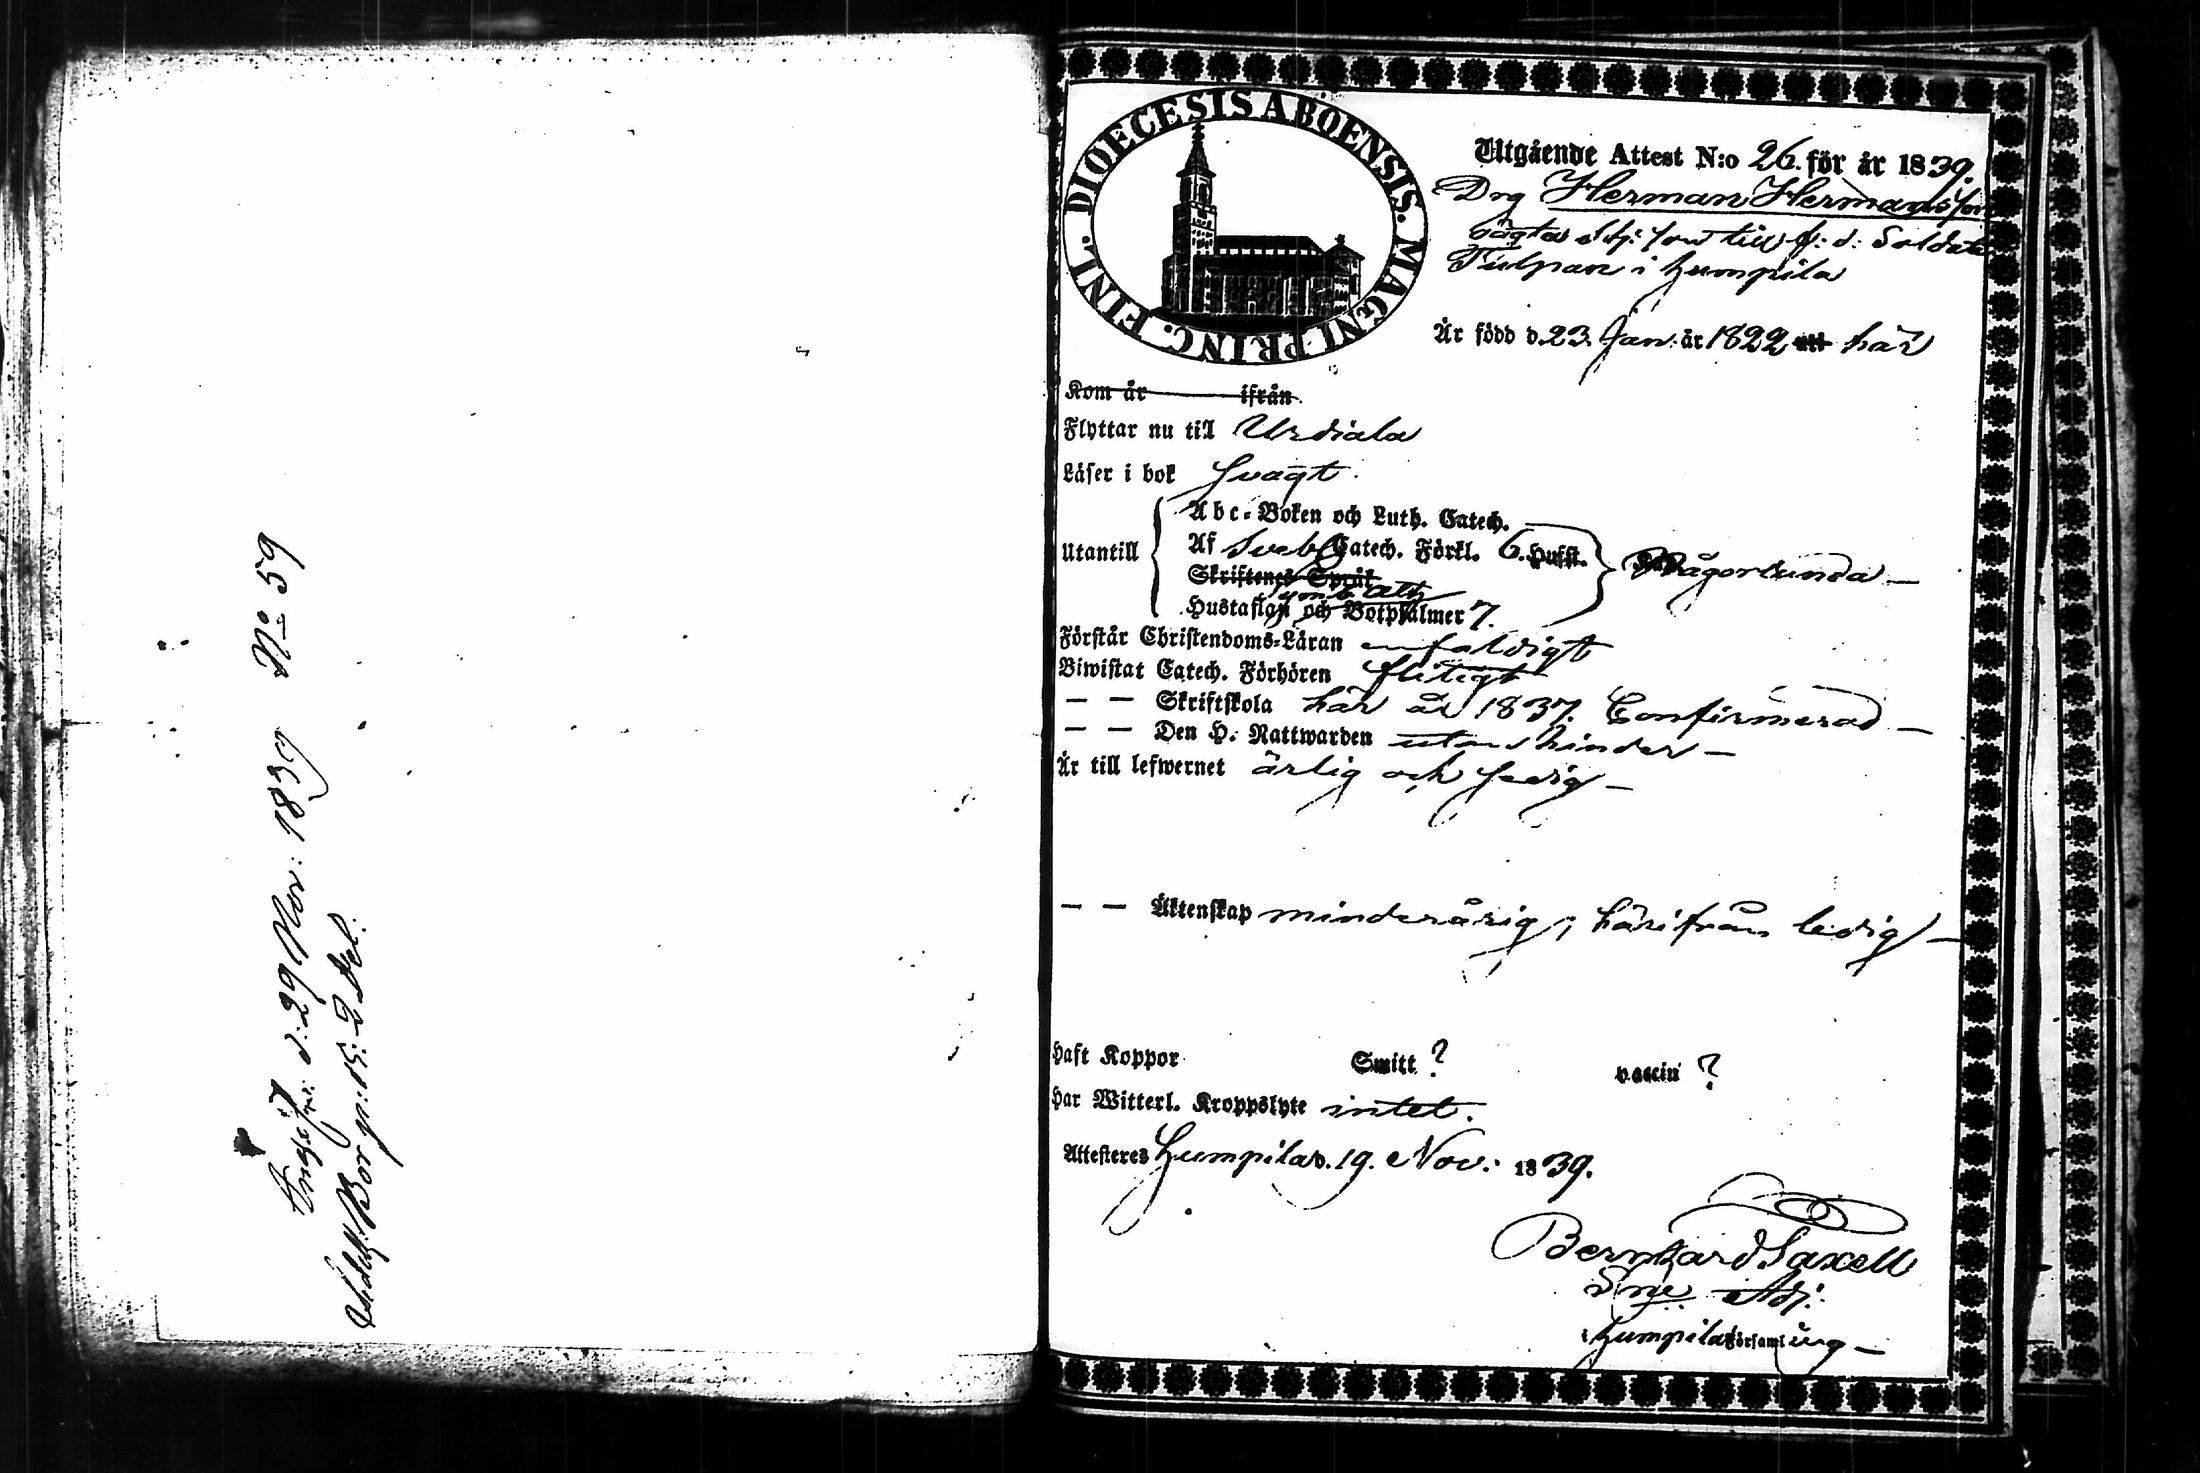 N:o 59
d: 29 Nov: 1839
DIOECESIS ABOENSIS. MAGNI PRINC. FINL.
Utgående Attest N:o 26. för år 1839.
Drg Herman Hermansson
till f: d: Soldaten
Tulpan i Humpila
Är född d. 23. Jan: år 1822 här
Kom år ifrån
Flyttar nu till Urdiala
Läser i bok svagt.
Utantill
Abc-Boken och Luth. Catech.
Af Sveb. Catech. Förkl. 6. Hufst.
Någorlunda —
Skriftenes Språk
Hustaflan och Botpsalmer 7.
Förstår Christendoms-Läran enfaldigt
Biwistat Catech. Förhören flitigt
— — Skriftskola här år 1837. Confirmerad —
— — Den H. Nattwarden utan hinder —
Är till lefwernet ärlig och sedig —
— — Äktenskap minderårig, härifrån ledig —
Haft Koppor Smitt ? vaccin ?
Har Witterl. Kroppslyte intet.
Attesteras Humpila d. 19. Nov: 1839.
Bernhard Saxell
Adj:
i Humpila Församling —